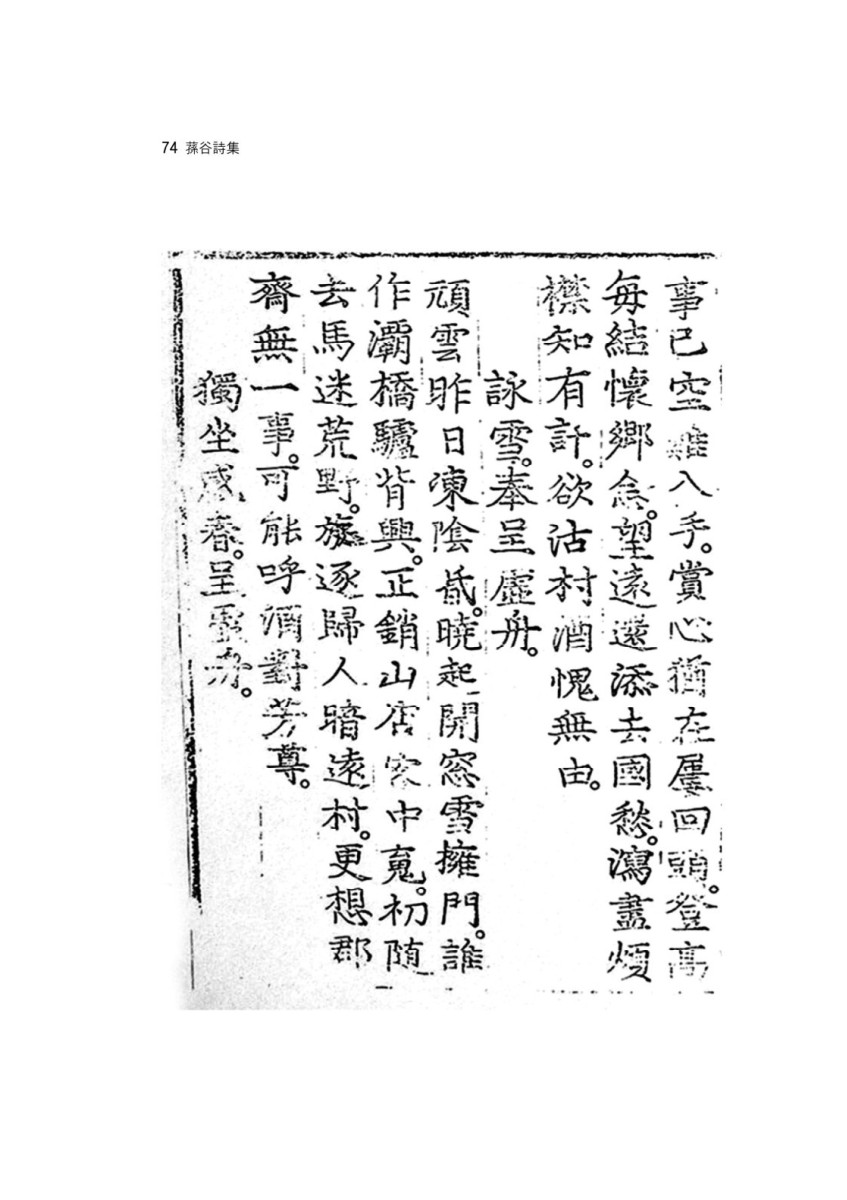 74 蓀谷詩集
事已空難入手。賞心猶在屢回頭。登高
每結懷鄉念。望遠還添去國愁。瀉盡煩
襟知有計。欲沽村酒愧無由。
詠雪。奉呈虛舟。
頑雲昨日凍陰昏。曉起開窓雪擁門。誰
作灞橋驢背興。正銷山店客中魂。初隨
去馬迷荒野。旋逐歸人暗遠村。更想郡
齋無一事。可能呼酒對芳尊。
獨坐感春。呈虛舟。